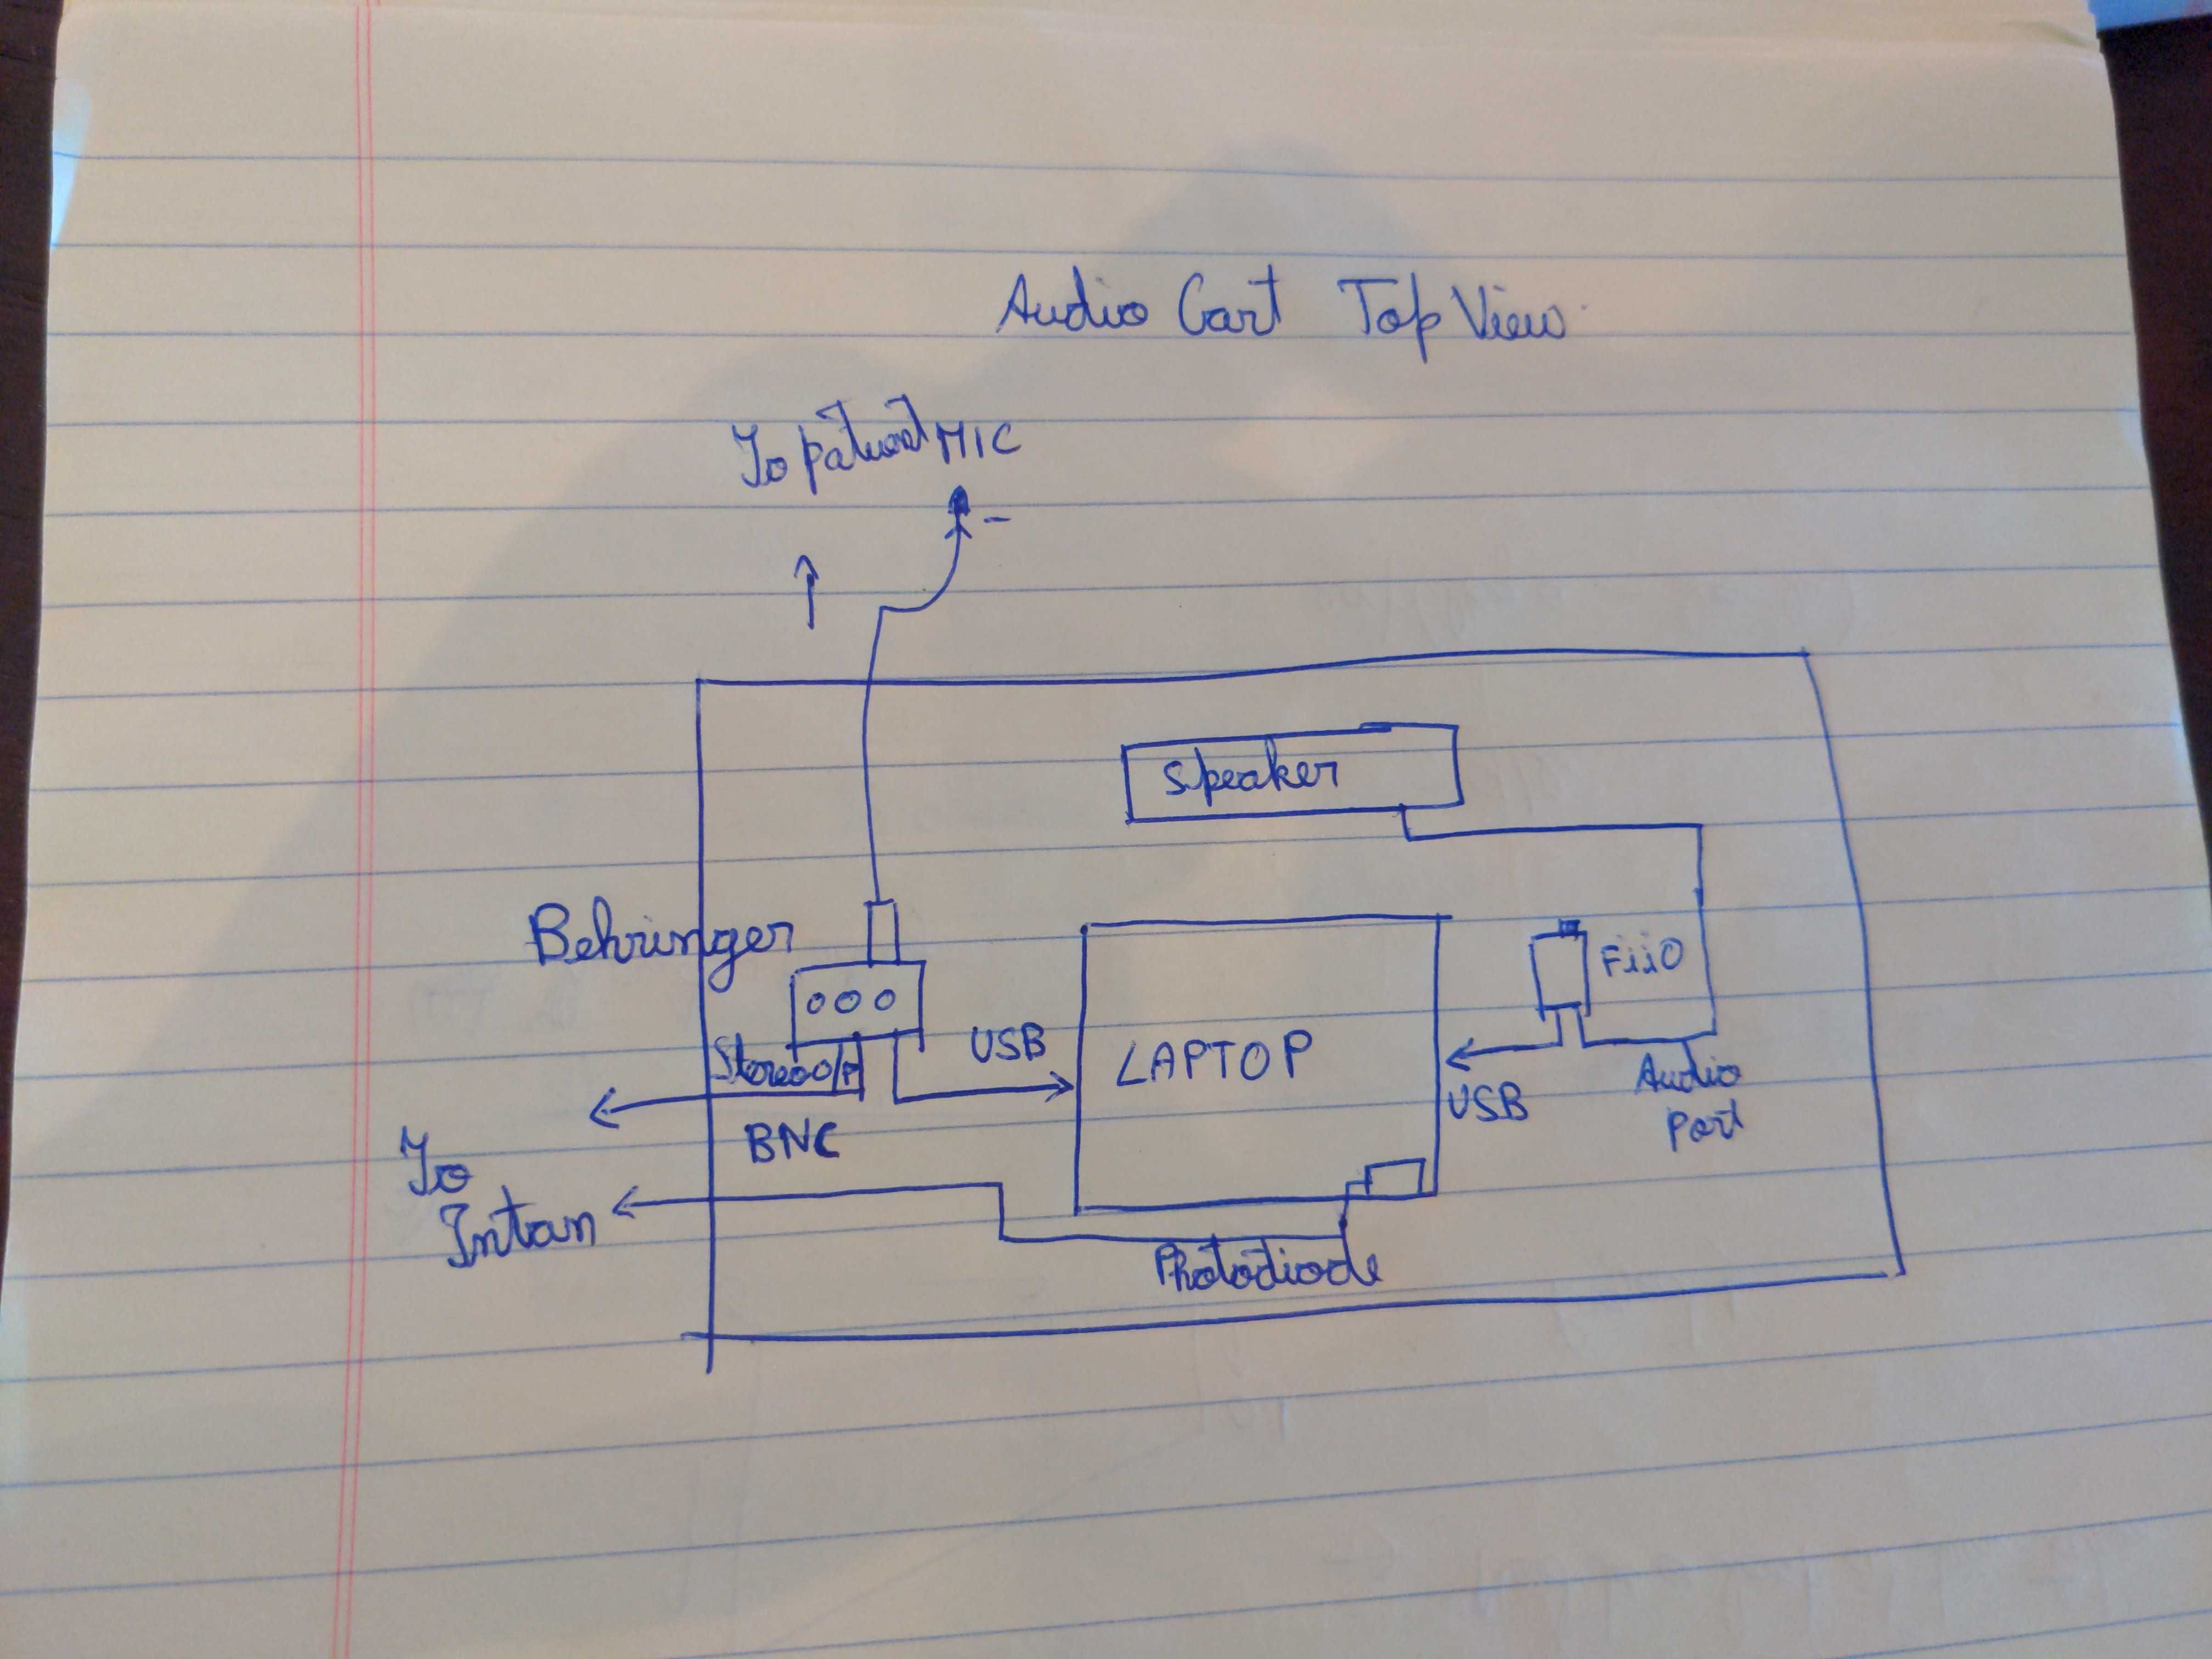 Audio Cart Top View
To patient MIC
Speaker
Behringer
FiiO
Stereo O/P
USB
LAPTOP
USB
Audio
Port
BNC
To
Intan
Photodiode